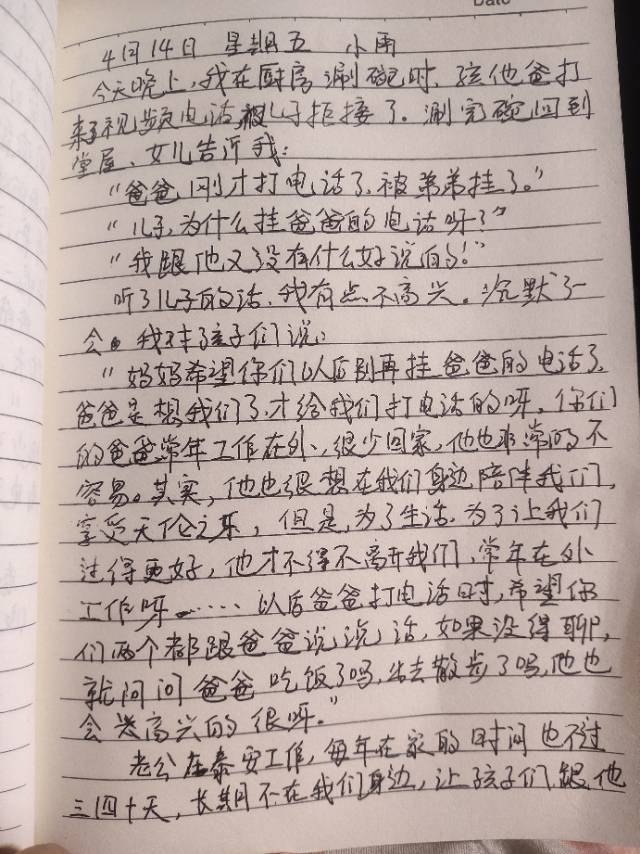 Date
4月14日 星期五 小雨
今天晚上,我在厨房涮碗时,孩他爸打
来了视频电话,被儿子拒接了。涮完碗回到
堂屋,女儿告诉我:
“爸爸刚才打电话了,被弟弟挂了。”
“儿子,为什么挂爸爸的电话呀?”
“我跟他又没有什么好说的!”
听了儿子的话,我有点不高兴。沉默了一
会。我对孩子们说:
“妈妈希望你们以后别再挂爸爸的电话了,
爸爸是想我们了,才给我们打电话的呀。你们
的爸爸常年工作在外、很少回家,他也非常的不
容易。其实,他也很想在我们身边陪伴我们,
享受天伦之乐,但是,为了生活,为了让我们
过得更好,他才不得不离开我们,常年在外
工作呀……以后爸爸打电话时,希望你
们两个都跟爸爸说说话,如果没得聊,
就问问爸爸吃饭了吗,出去散步了吗,他也
会高兴的很呀。”
老公在泰安工作,每年在家的时间也不过
三四十天,长期不在我们身边,让孩子们跟他